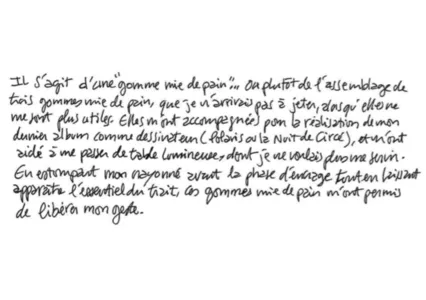 Il s'agit d'une "gomme mie de pain"... Ou plutôt de l'assemblage de
trois gommes mie de pain, que je n'arrivais pas à jeter, alors qu'elles ne
me sont plus utiles. Elles m'ont accompagnées pour la réalisation de mon
dernier album comme dessinateur (Polaris ou la Nuit de Circé), et m'ont
aidé à me passer de table lumineuse, dont je ne voulais plus me servir.
En estompant mon crayonné avant la phase d'encrage tout en laissant
apparaître l'essentiel du trait, ces gommes mie de pain m'ont permis
de libérer mon geste.